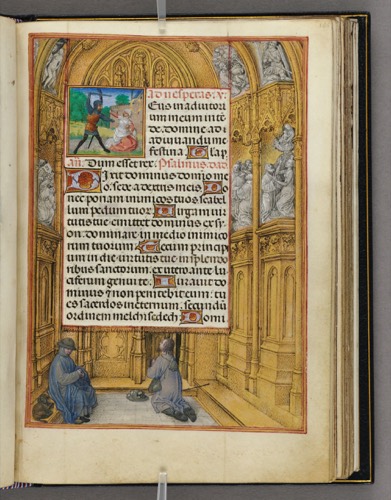 Ad vesperas. v.
Eus in adiutori
um meum inte
de. Domine ad a
diuuandum me
festina. Gla p̃.
añ. Dum esset rex. Psalmus. dd
Dixit dominus domino me
o: sede a dextris meis. Do
nec ponam inimicos tuos scabel
lum pedum tuor. Virgam uir
tutis tue emittet dominus ex sy
on: dominare in medio inimico
rum tuorum. Tecum princip
um in die uirtutis tue in splendo
ribus sanctorum. ex utero ante lu
ciferum genui te. Iurauit do
minus & non penitebit eum: tu
es sacerdos in eternum. secundū
ordinem melchisedech. Domi